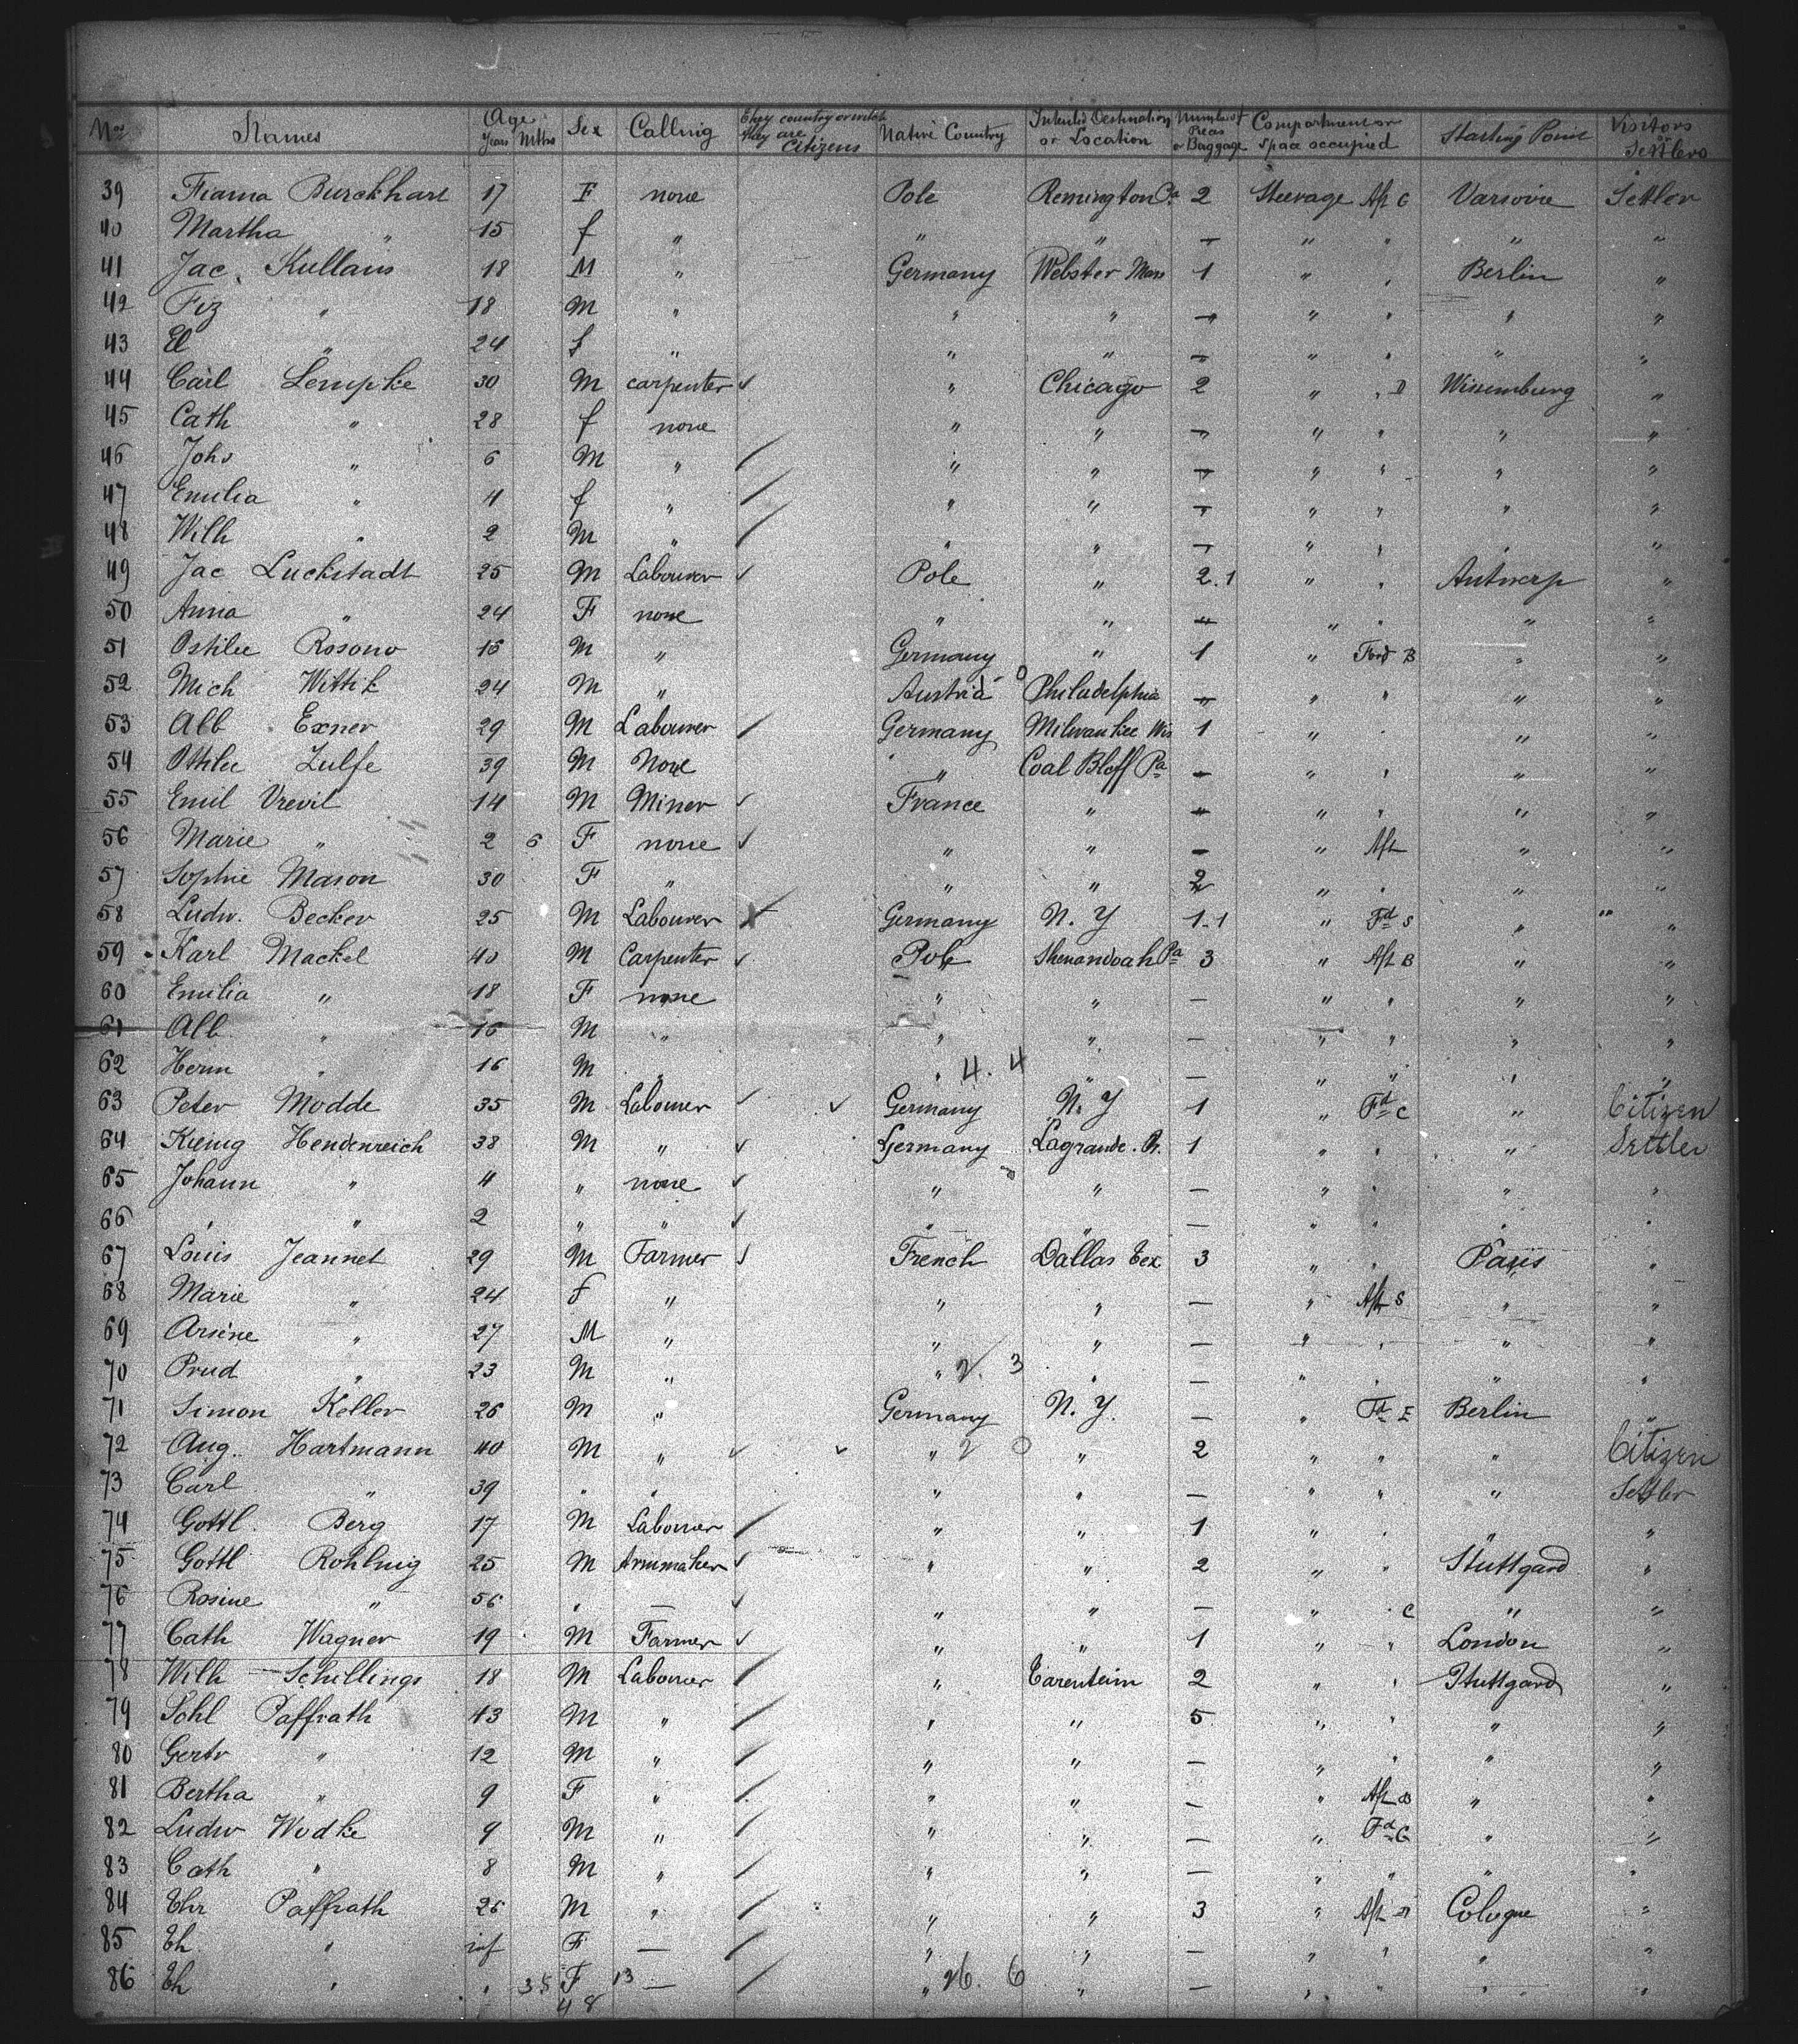 Nos Names Age Years Mths Sex Calling They country of which they are Citizens Native Country Intended Destination or Location Number of Pieces of Baggage Compartment or space occupied Starting Point Visitors or Settlers
39 Burckhart 17 F none Pole Remington Pa 2 Steerage Aft C Varsovie Settler
40 Martha " 15 f " " " — " " " "
41 Jac. Kullans 18 M " Germany Webster Mass 1 " " Berlin "
42 Frz " 18 M " " " — " " " "
43 El " 24 f " " " — " " " "
44 Carl Lempke 30 M carpenter ✓ " Chicago 2 " " D "
45 Cath " 28 f none " " — " " " "
46 Johs " 6 M " " " — " " " "
47 Emilia " 4 f " " " — " " " "
48 Wilh " 2 M " " " — " " " "
49 Jac Luckstadt 25 M Labourer ✓ Pole " 2.1 " " Antwerp "
50 Anna " 24 F none " " — " " " "
51 Rosono M " Germany " 1 " Ford B " "
52 Mich Wittik 24 M " Austria 0 Philadelphia — " " " "
53 Alb Exner 29 M Labourer Germany Milwaukee Wis 1 " " " "
54 Ottilie Zulfe 39 M None " Coal Bloff Pa — " " " "
55 Emil Vrevil 14 M Miner ✓ France " — " " " "
56 Marie " 2 6 F none ✓ " " — " Aft " "
57 Sophie Mason 30 F " " " 2 " " " "
58 Ludw. Becker 25 M Labourer Germany N. Y 1-1 " Fd S " "
59 Karl Mackel 40 M Carpenter ✓ Pole Shenandoah Pa 3 " Aft B " "
60 Emilia " 18 F none " " — " " " "
61 Alb " 16 M " " " — " " " "
62 Herm " 16 M " " 4. 4 " — " " " "
63 Peter Modde 35 M Labourer ✓ ✓ Germany N. Y 1 " Fd C " Citizen
64 Hendenreich 38 M " ✓ Germany Lagrande 1 " " " Settler
65 Johann " 4 " none ✓ " " — " " " "
66 " " 2 " " ✓ " " — " " " "
67 Louis Jeannet 29 M Farmer ✓ French Dallas Tex 3 " " Paris "
68 Marie " 24 f " " " — " Aft S " "
69 Arsène " 27 M " " " — " " " "
70 Prud " 23 M " " 2. 3 " — " " " "
71 Simon Keller 26 M " Germany N. Y. — " Fd E Berlin "
72 Aug. Hartmann 40 M " ✓ ✓ " 2 0 " 2 " " " Citizen
73 Carl " 39 " " " " — " " " Settler
74 Gottl. Berg 17 M Labourer " " 1 " " " "
75 Gottl Rohlnig 25 M Armmaker ✓ " " 2 " " Stuttgard "
76 Rosine " 56 " — ✓ " " — " " C " "
77 Cath Wagner 19 M Farmer ✓ " " 1 " " London "
78 Wilh Schillings 18 M Labourer " Tarenteim 2 " " Stuttgard "
79 Paffrath 43 M " " " 5 " " " "
80 Gertr " 12 M " " " — " " " "
81 Bertha " 9 F " " " — " Aft B " "
82 Ludw Wodke 9 M " " " — " Fd G " "
83 Cath " 8 M " " " — " " " "
84 Chr Paffrath 26 M " " " 3 " Aft Cologne "
85 " inf F — " " — " " " "
86 " " 35 F 13 — " 26. 6 " — " " " "
48